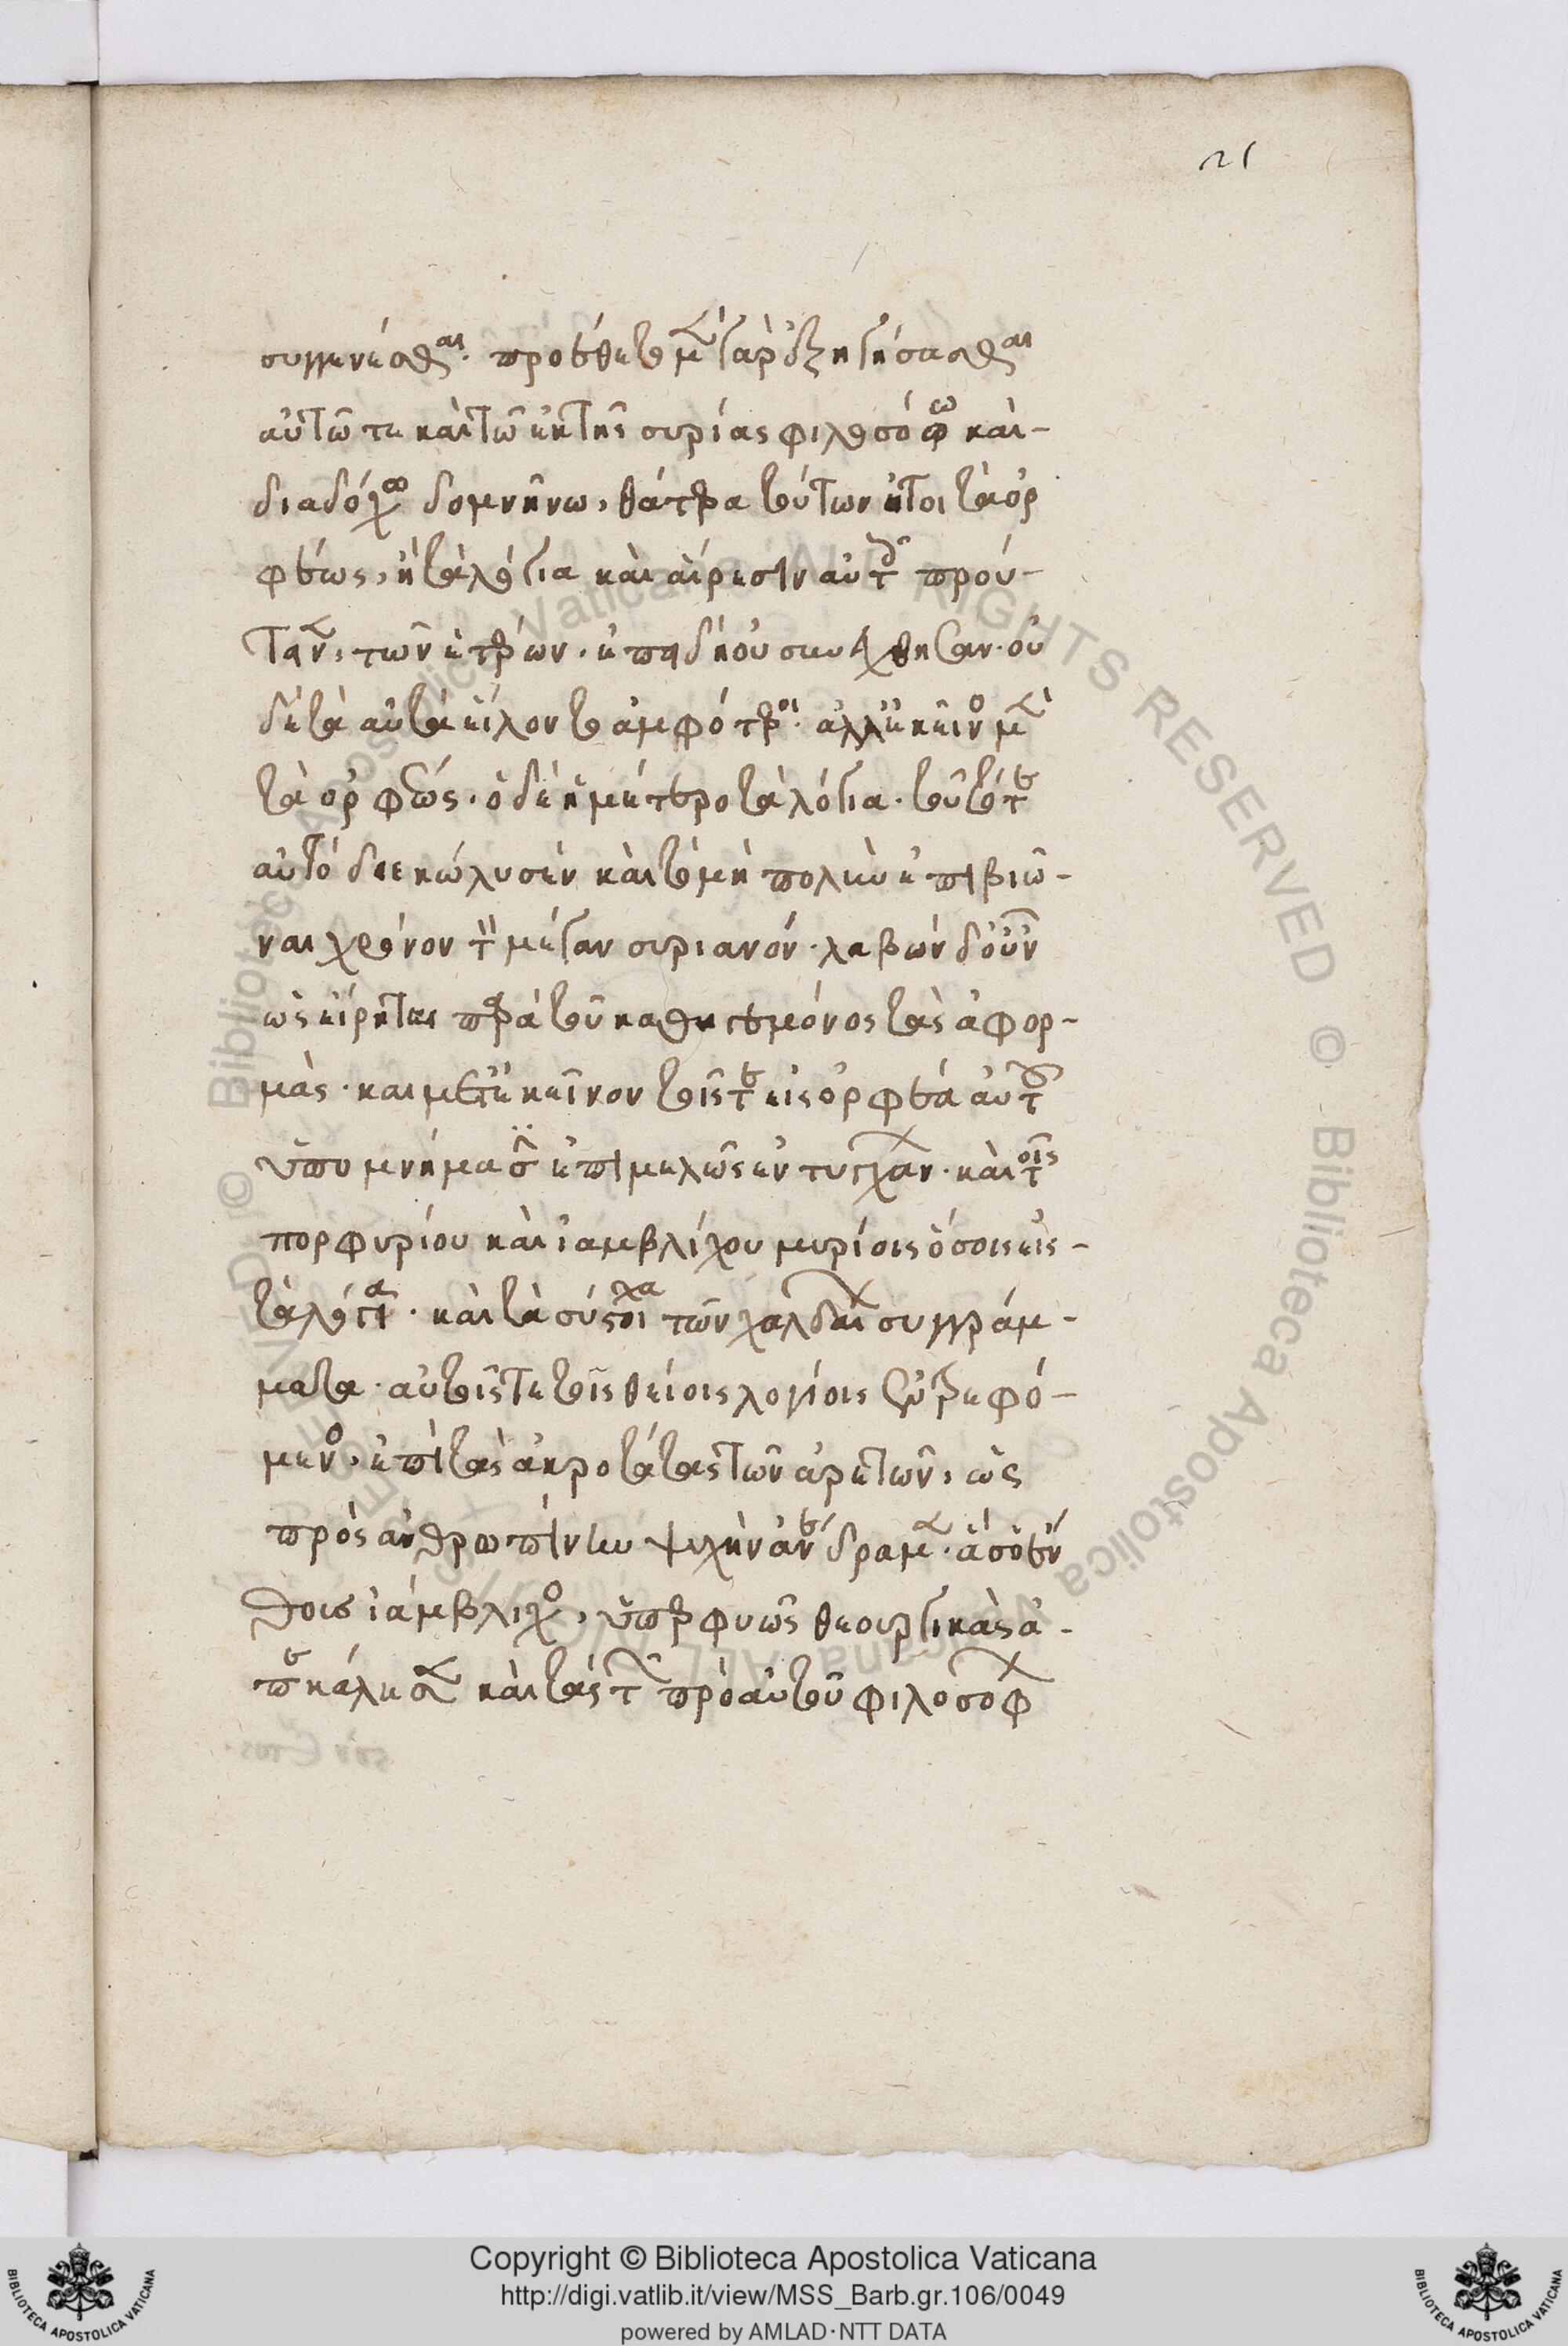 21
συγγενέσθαι. προύθετο μὲν γὰρ ἐξηγήσασθαι
αὐτῶ τε καὶ τῶ ἐκ τῆς συρίας φιλοσόφω καὶ-
διαδόχω δομνήνω, θάτερα τούτων ἤτοι τὰ ὀρ
φέως, ἢ τὰ λόγια καὶ αἵρεσιν αὐτοῖς πρού-
τεινεν, τῶν ἑτέρων. ἐπεὶ δὴ οὐ συνήχθησαν. οὐ
δὲ τὰ αὐτὰ εἵλοντο ἀμφότεροι. ἀλλ' ἐκεῖνος μὲν
τὰ ὀρφέως. ὁ δὲ ἡμέτερος τὰ λόγια. τοῦτό τε
αὐτὸ διεκώλυσεν καὶ τὸ μὴ πολὺν ἐπιβιῶ-
ναι χρόνον τὸν μέγαν συριανόν. λαβὼν δ' οὖν
ὡς εἴρηται παρὰ τοῦ καθηγεμόνος τὰς ἀφορ-
μάς. καὶ μετ' ἐκεῖνον τοῖς τε εἰς ὀρφέα αὐτοῦ
ὑπομνήμασιν ἐπιμελῶς ἐντυγχάνων. καὶ τοῖς
πορφυρίου καὶ ἰαμβλίχου μυρίοις ὅσοις εἰς-
τὰ λόγια. καὶ τὰ σύστοιχα τῶν χαλδαίων συγγράμ-
ματα. αὐτοῖς τε τοῖς θείοις λογίοις ἐντρεφό-
μενος. ἐπὶ τὰς ἀκροτάτας τῶν ἀρετῶν, ὡς
πρὸς ἀνθρωπίνην ψυχὴν ἀνέδραμεν. ἃς ὁ ἔν
θους ἰάμβλιχος, ὑπερφυῶς θεουργικὰς ἀ-
πεκάλεσεν καὶ τὰς τῶν πρὸ αὐτοῦ φιλοσόφων
Copyright © Biblioteca Apostolica Vaticana
http://digi.vatlib.it/view/MSS_Barb.gr.106/0049
powered by AMLAD·NTT DATA